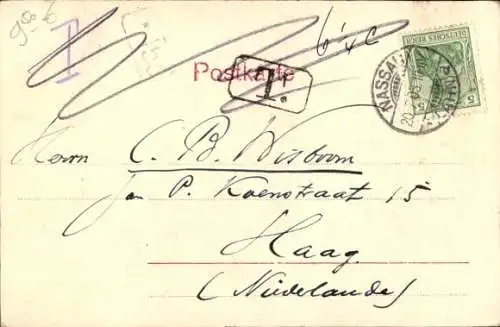 6¼ C
Postkarte
T.
DEUTSCHES REICH
5 5
NASSAU
Herrn C. B. Wisboom
Jan P. Koenstraat 15
Haag
(Niederlande)